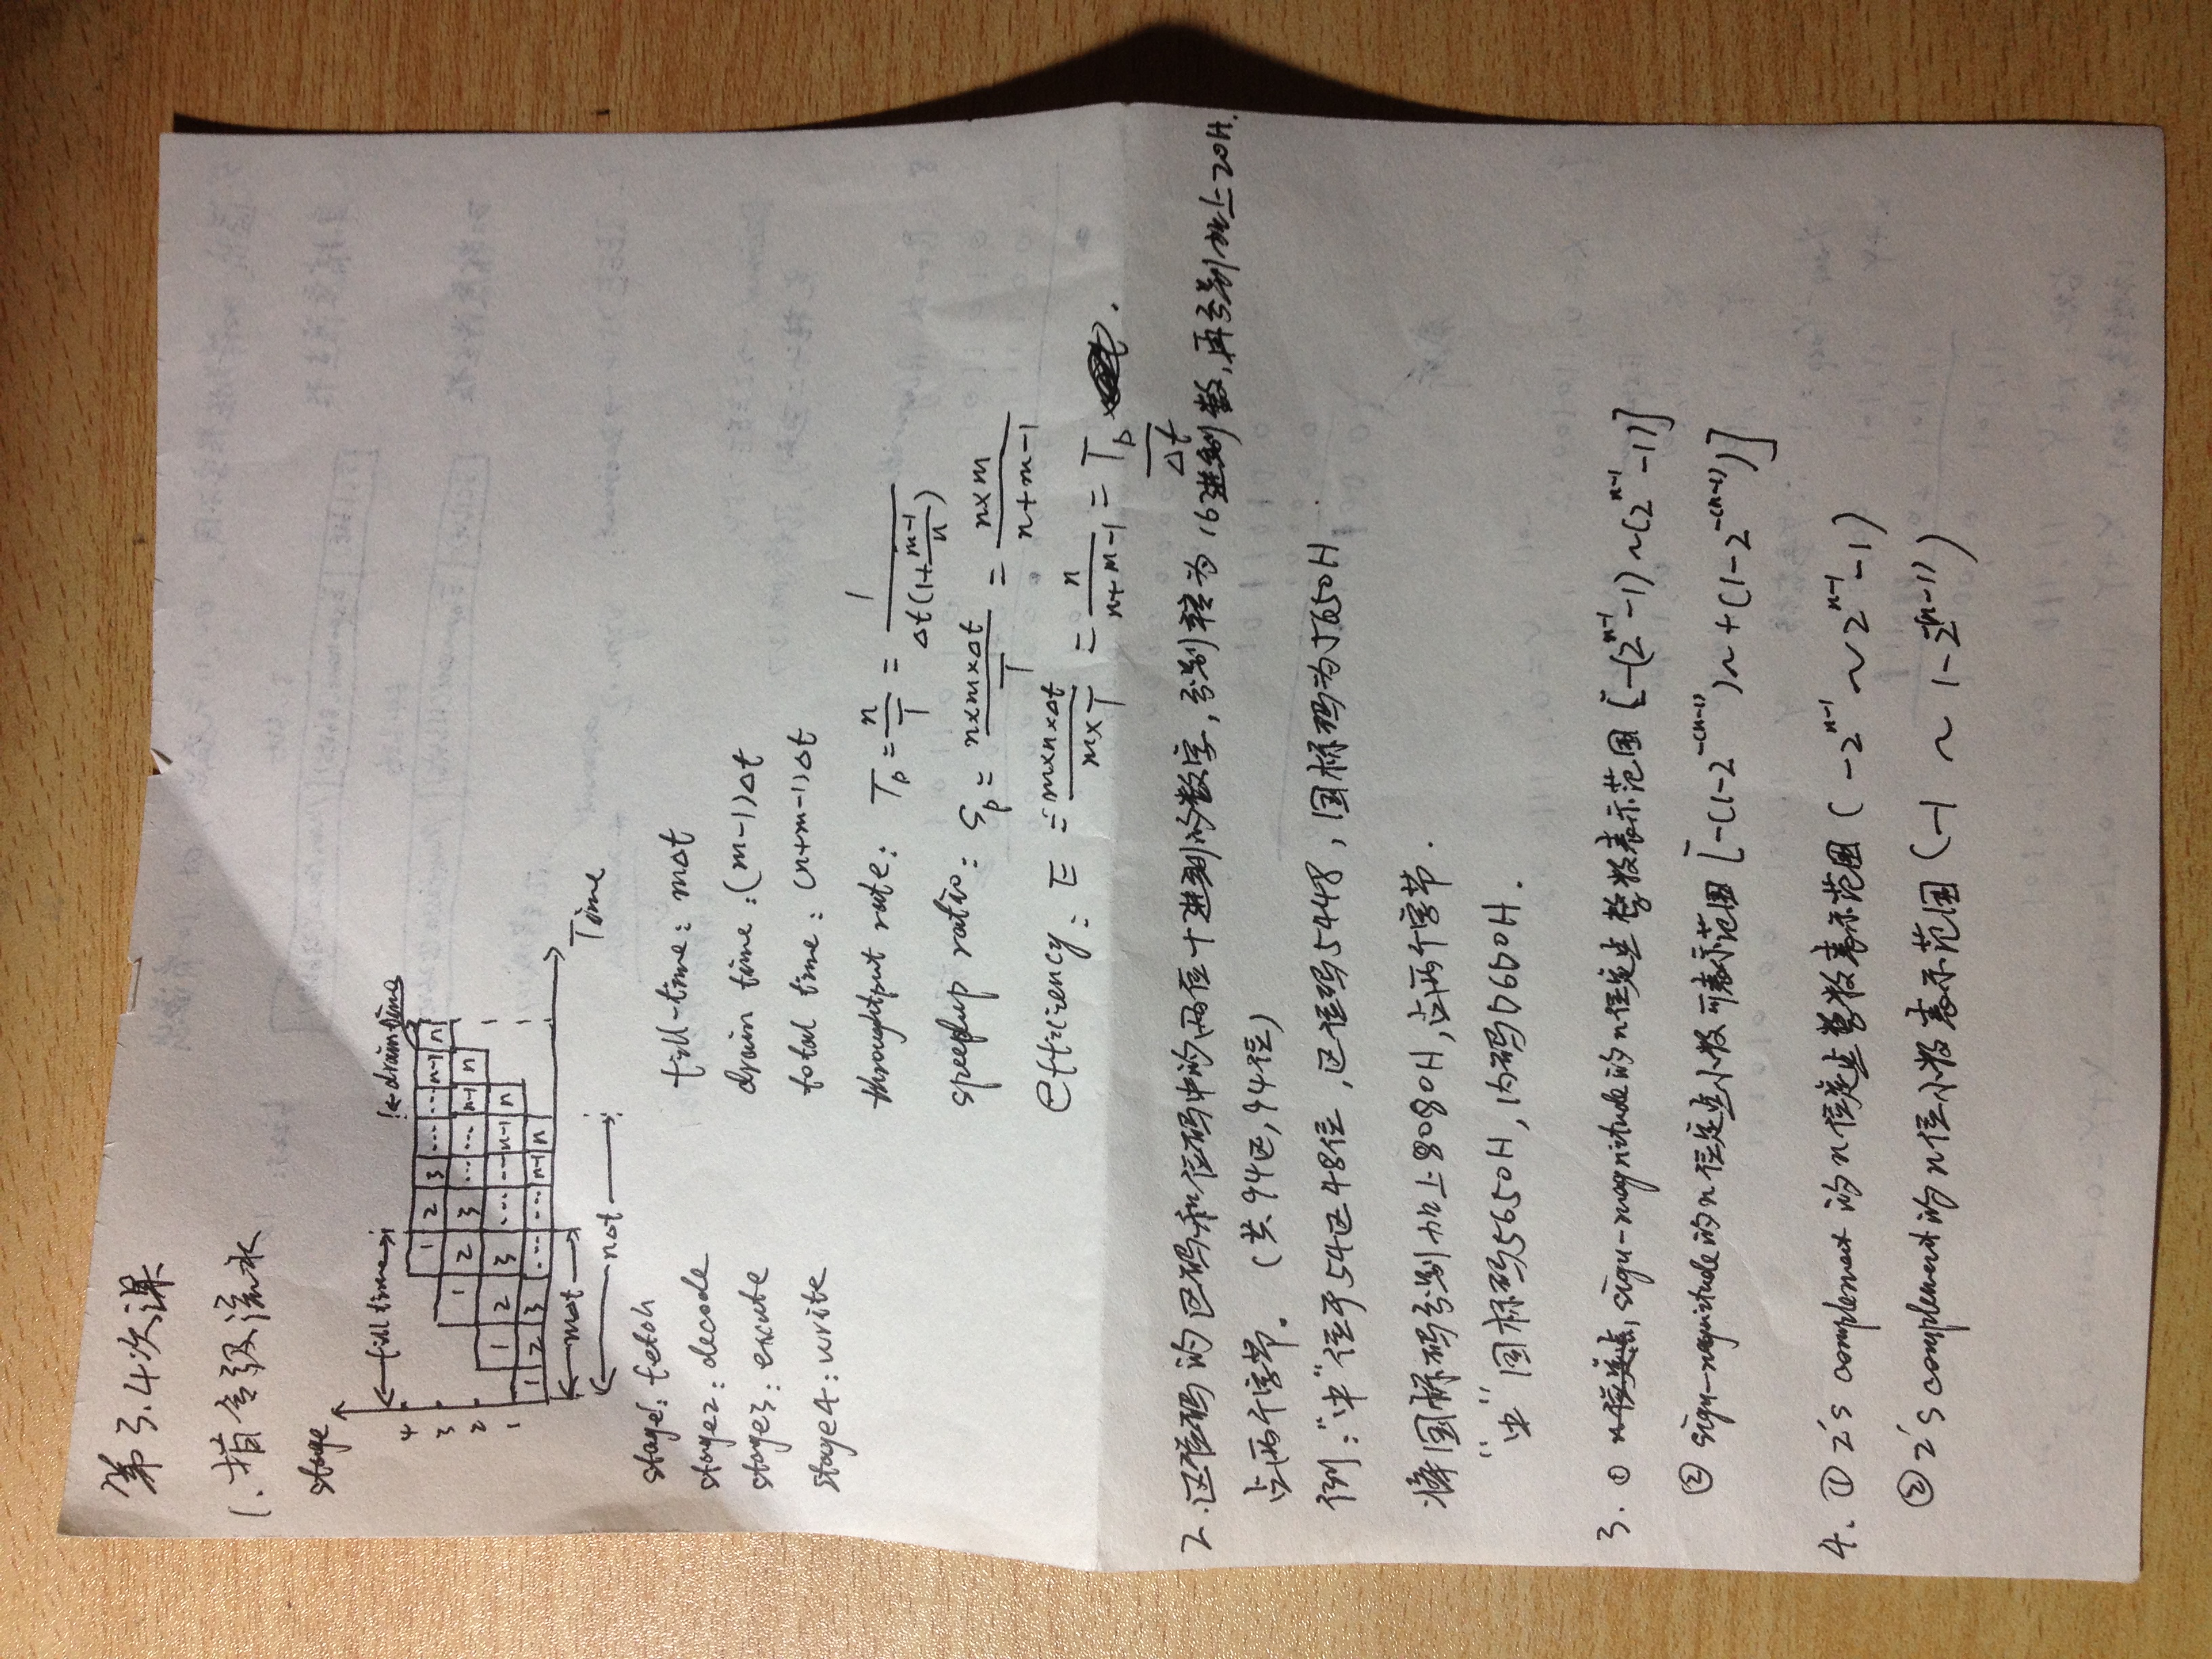 第3.4次课
1.指令级流水
stage
fill time
drain time
4 1 2 3 ... ... n-1 n
3 1 2 3 ... ... n-1 n
2 1 2 3 ... ... n-1 n
1 1 2 3 ... ... n-1 n
mΔt
Time
nΔt
stage1: fetch
stage2: decode
stage3: excute
stage4: write
fill-time: mΔt
drain time: (m-1)Δt
total time: (n+m-1)Δt
throughtput rate: Tp = n/T = 1/(Δt(1+(m-1)/n))
speedup ratio: Sp = (n×m×Δt)/T = (n×m)/(n+m-1)
efficiency: E = (m×n×Δt)/(m×T) = n/(n+m-1) = Tp/Δt.
2.区位码的区码和位码中的两位十进制的数字,分别转为16进制数,再分别加上20H.
占两个字节. (共94区,94位)
例:"中"位于54区48位,区位码5448,国标码为5650H
将国标码分别加上8080H,占两个字节.
"中"国标码5650H,内码D6D0H.
3. ① n位定点, sign-magnitude的n位定点整数表示范围 [-(2^(n-1)-1)~(2^(n-1)-1)]
② sign-magnitude的n位定点小数可表示范围 [-(1-2^-(n-1))~+(1-2^-(n-1))]
4. ① 2's complement的n位定点整数表示范围 (-2^(n-1) ~ 2^(n-1)-1)
② 2's complement的n位小数表示范围 (-1 ~ 1-2^-(n-1))